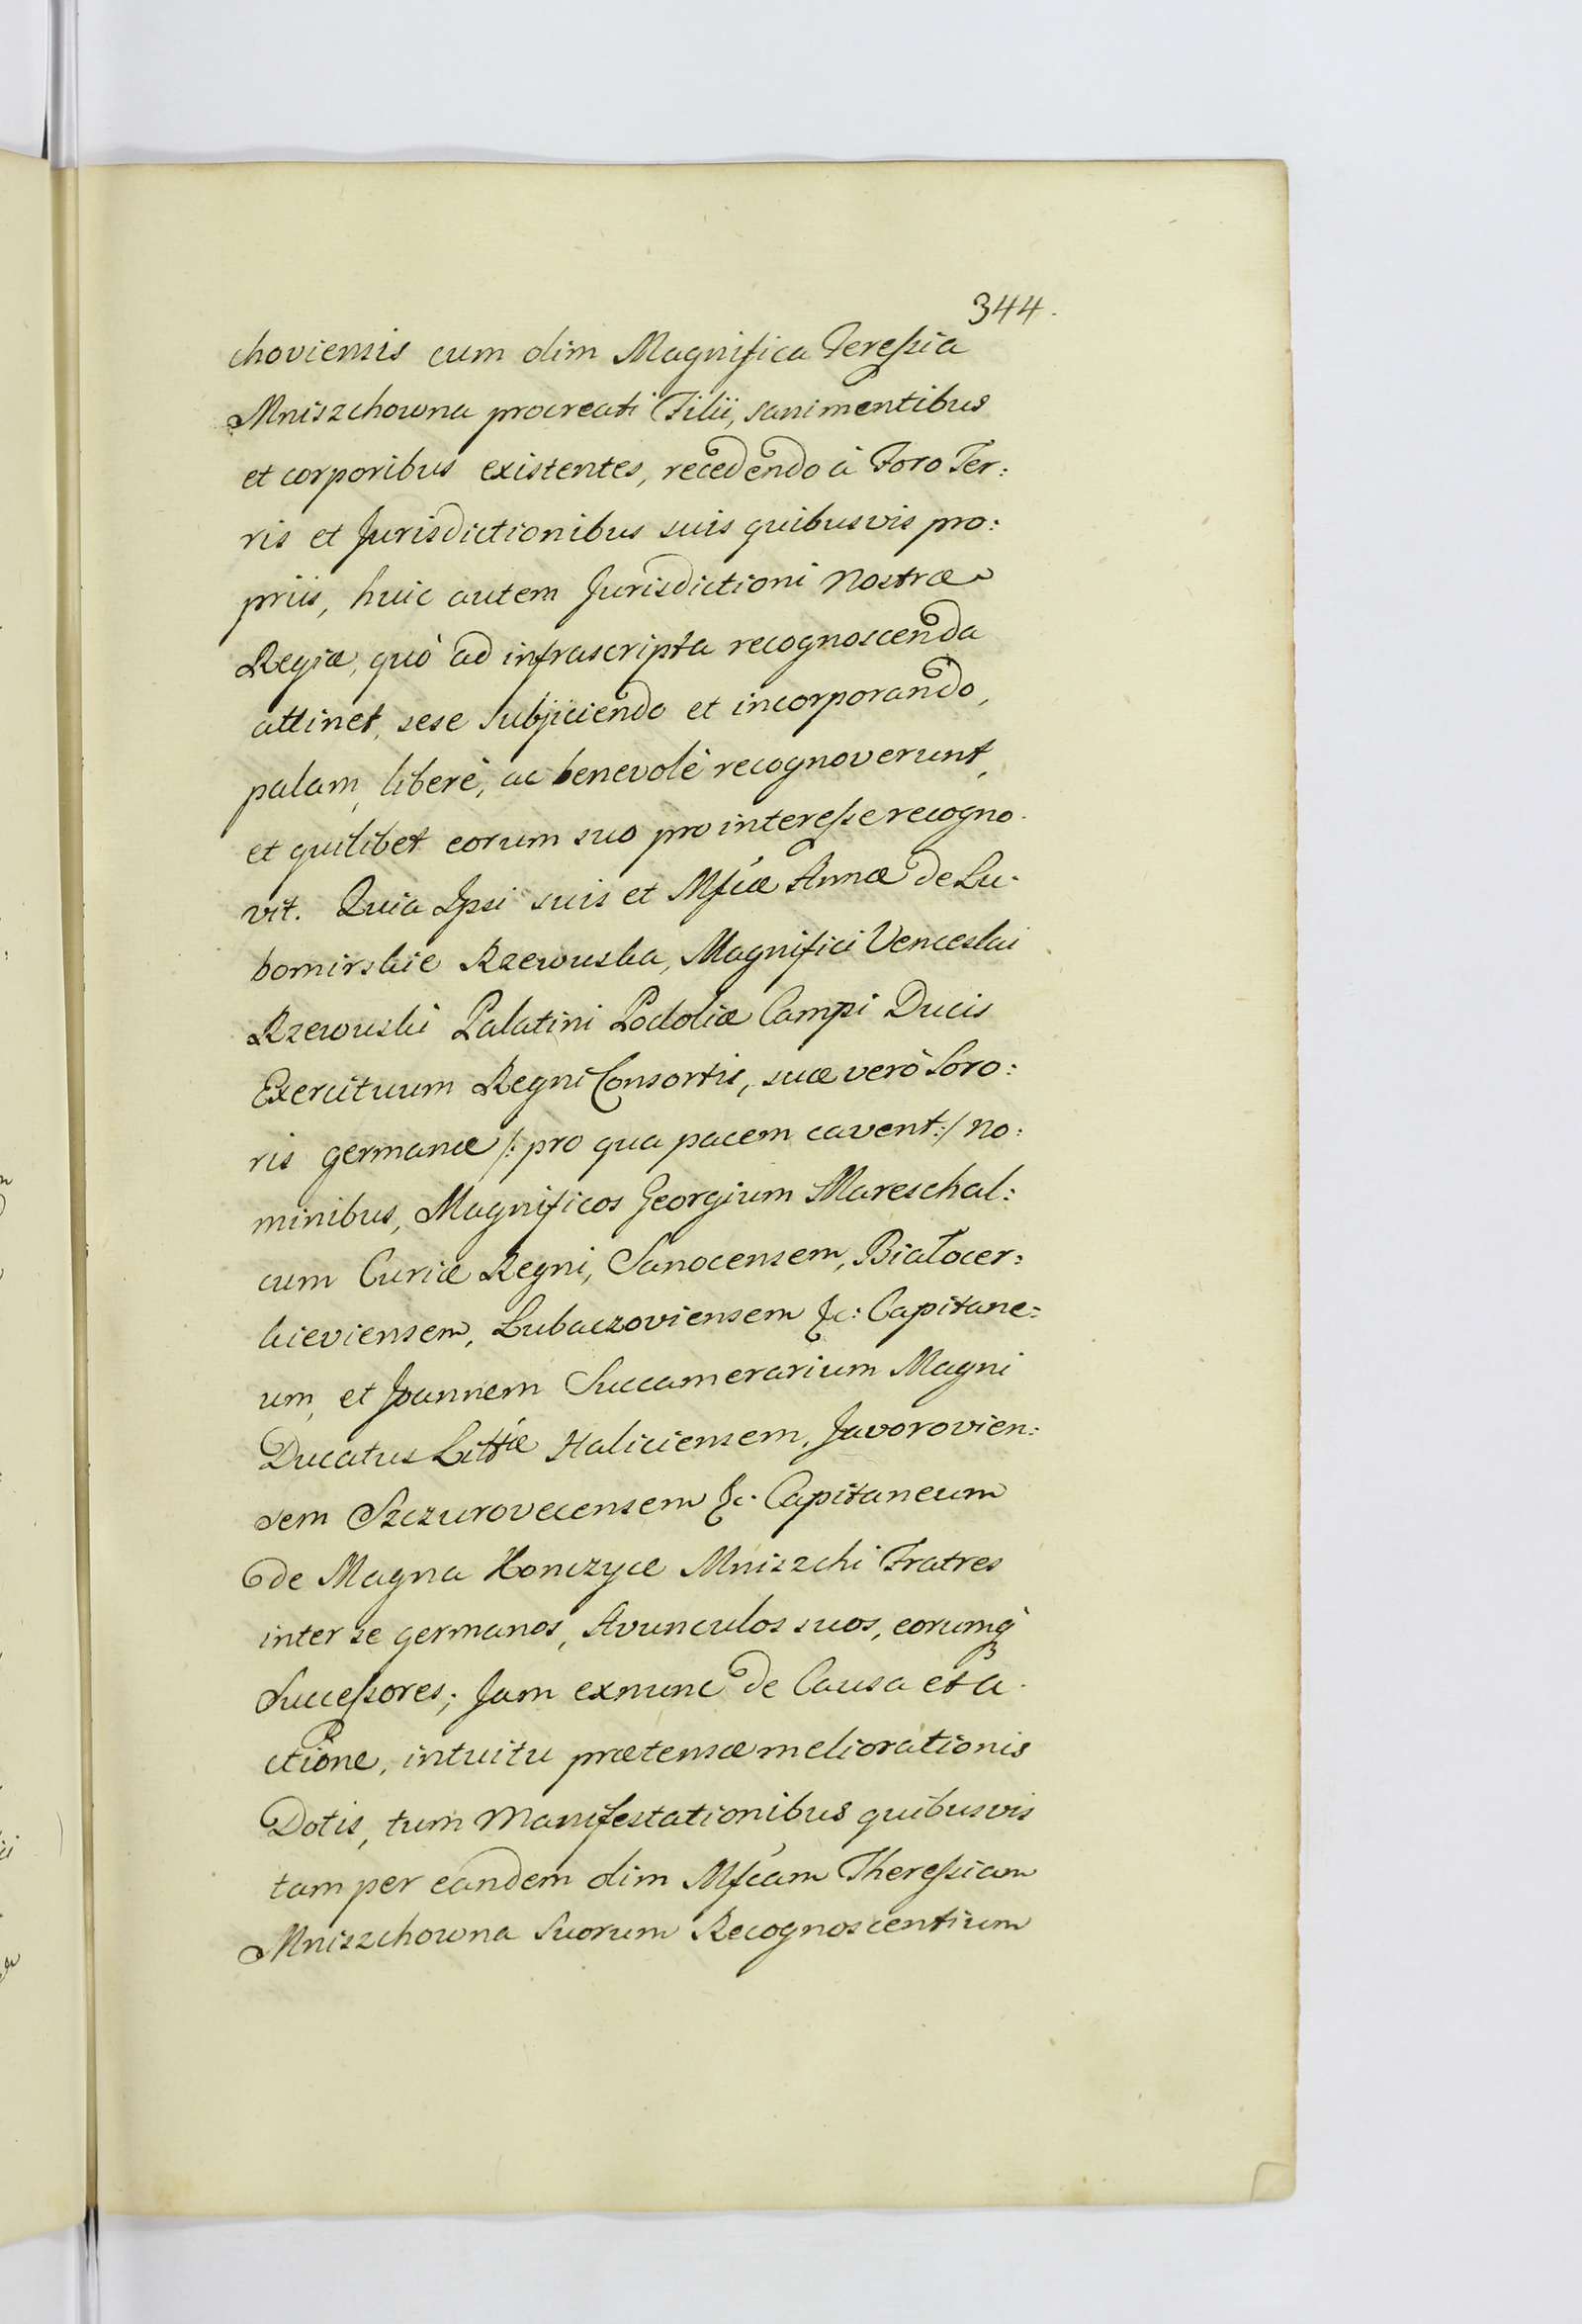 344.
choviensis cum olim Magnifica Teressia
Mniszchowna procreati Filii, sani mentibus
et corporibus existentes, recedendo à Foro Ter:
ris et Jurisdictionibus suis quibusvis pro:
priis, huic autem Jurisdictioni Nostræ
Regiæ, quò ad infrascripta recognoscenda
attinet, sese subjiciendo et incorporando,
palam, liberè, ac benevolè recognoverunt,
et quilibet eorum suo pro interesse recogno.
vit. Quia Ipsi suis et Mfcæ Annæ de Lu.
bomirskie Rzewuska, Magnifici Venceslai
Rzewuski Palatini Podoliæ Campi Ducis
Exercituum Regni Consortis, suæ verò Soro:
ris germanæ /: pro qua pacem cavent :/ no:
minibus, Magnificos Georgium Mareschal:
cum Curiæ Regni, Sanocensem, Białocer:
kieviensem, Lubaczoviensem &c: Capitane:
um, et Joannem Succamerarium Magni
Ducatus Littiæ Haliciensem, Javorovien:
sem Szczurovecensem &c. Capitaneum
de Magna Konczyce Mniszchi Fratres
inter se germanos, Avunculos suos, eorumq
Successores; Jam exnunc de Causa et a.
ctione, intuitu prætensæ meliorationis
Dotis, tum Manifestationibus quibusvis
tam per eandem olim Mfcam Theressiam
Mniszchowna Suorum Recognoscentium